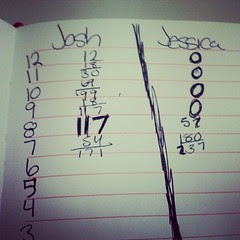 Josh Jessica
12 12 0
11 18 0
30
10 69 0
99
9 18 0
8 117 57
7 54 180
171 237
6
5
4
3